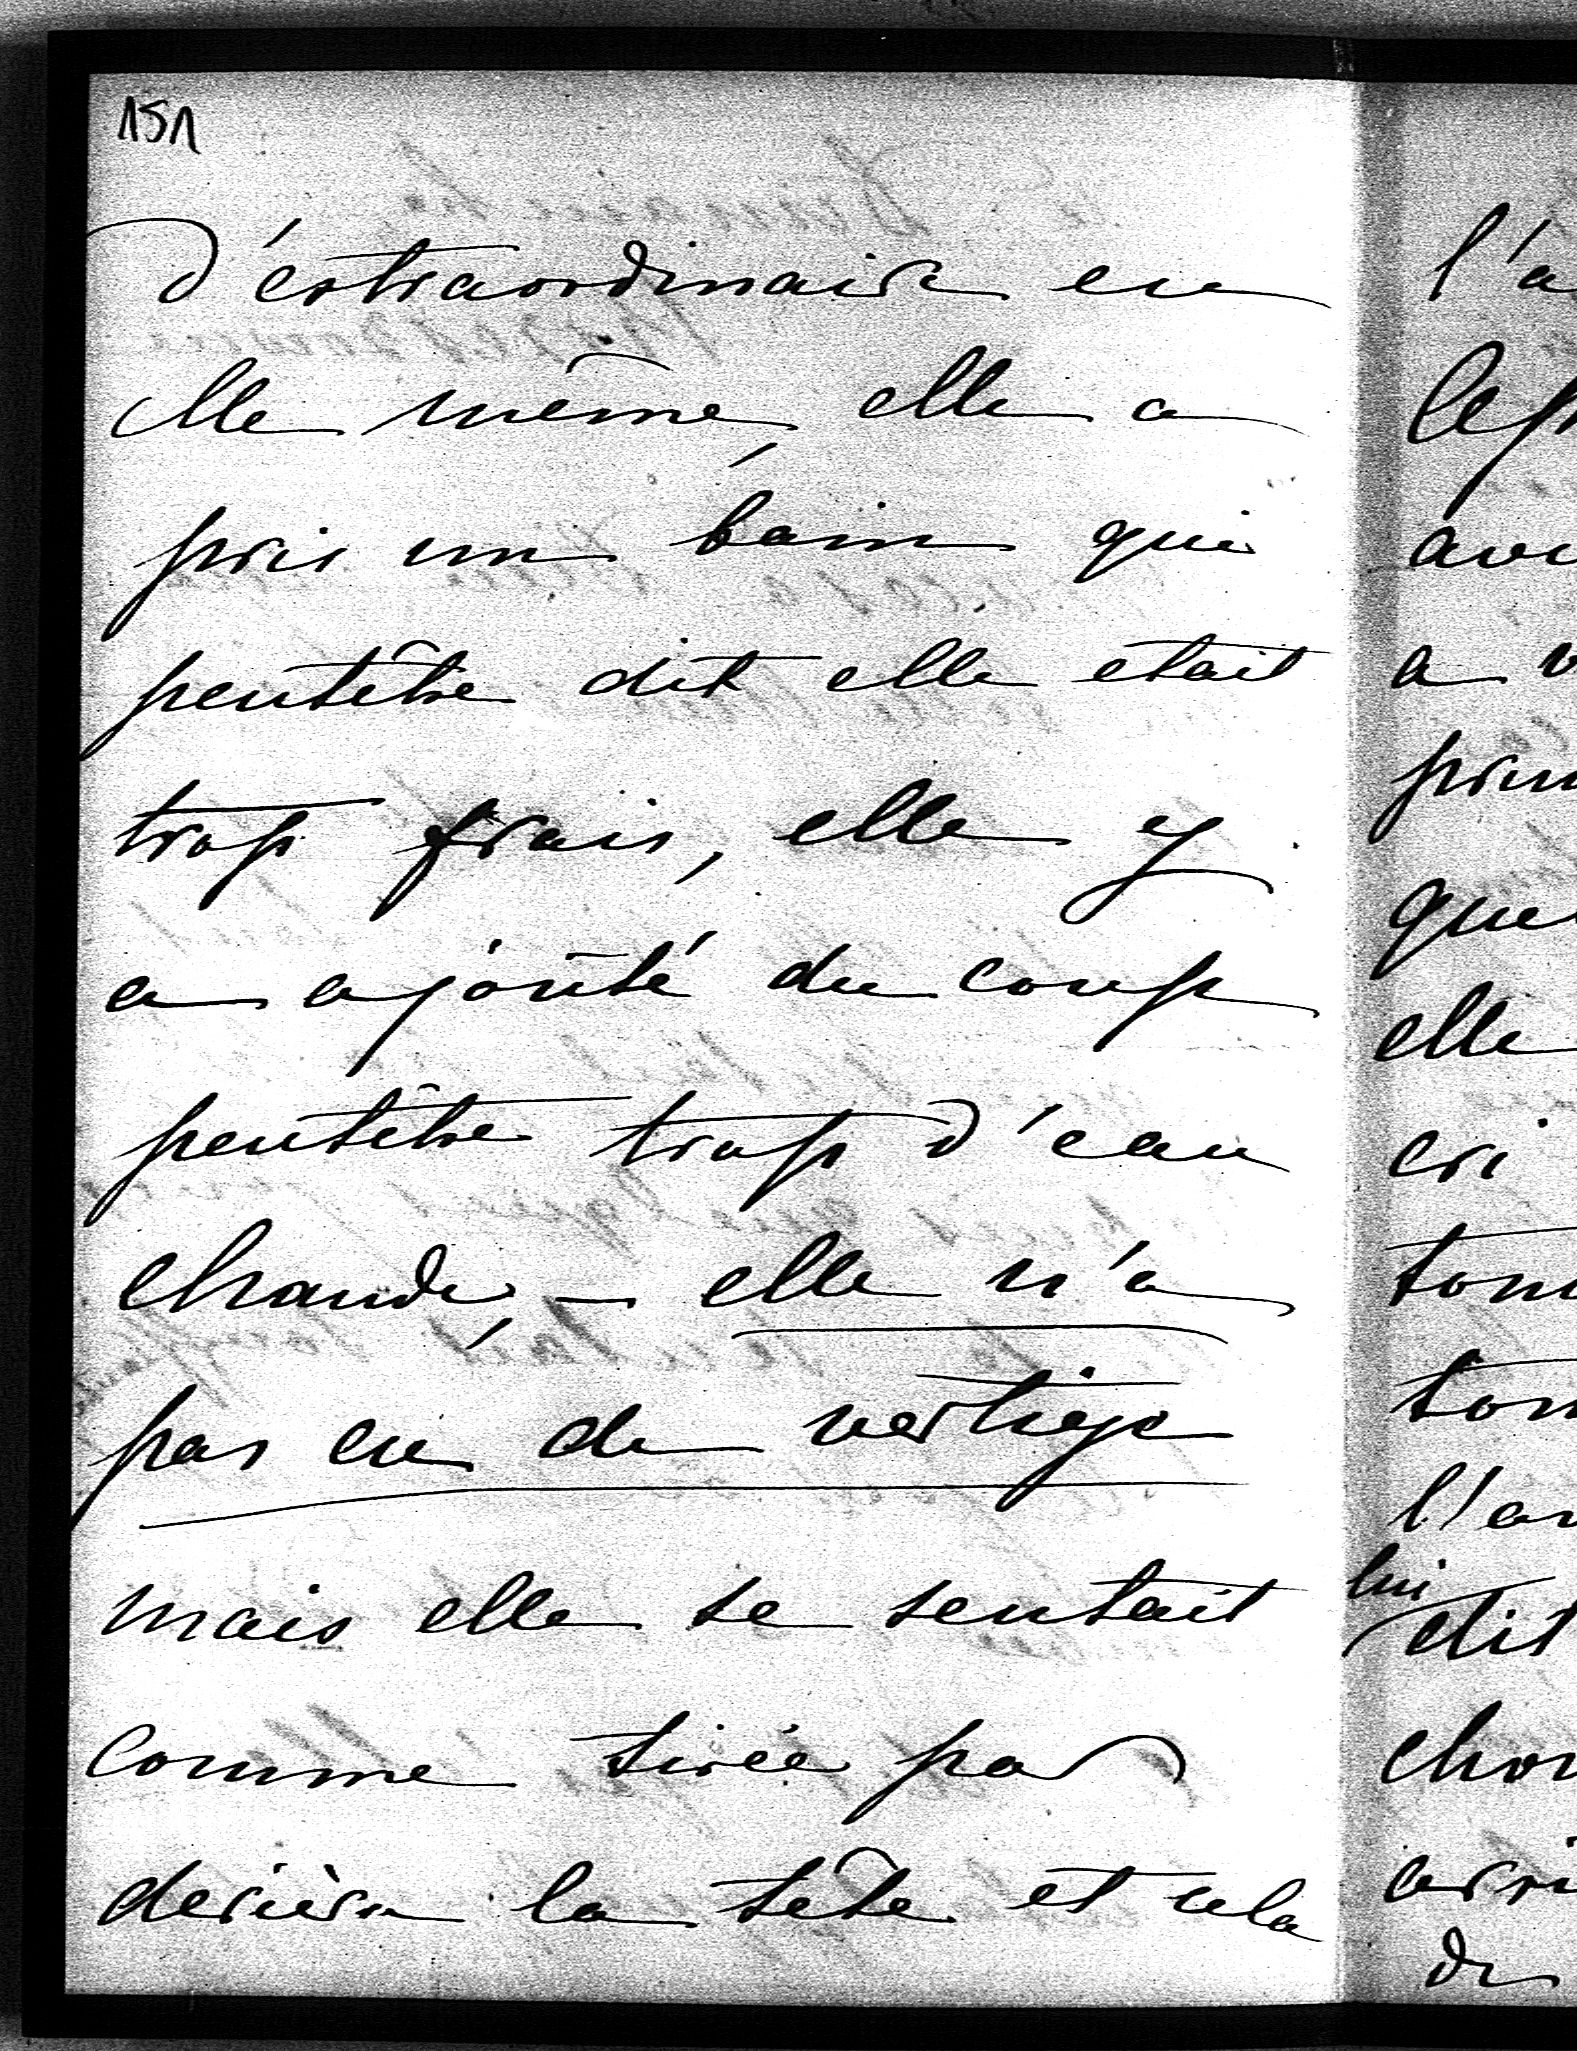 151
d'éxtraordinaire en
elle même, elle a
pris un bain qui
peutêtre dit elle etait
trop frais, elle y
a ajoûté du coup
peutêtre trop d'eau
chaude, — elle n'a
pas eu de vertige
mais elle se sentait
comme tirée par
derière la tête et cela
l'a
a
que
elle
cri
lui
dit
de